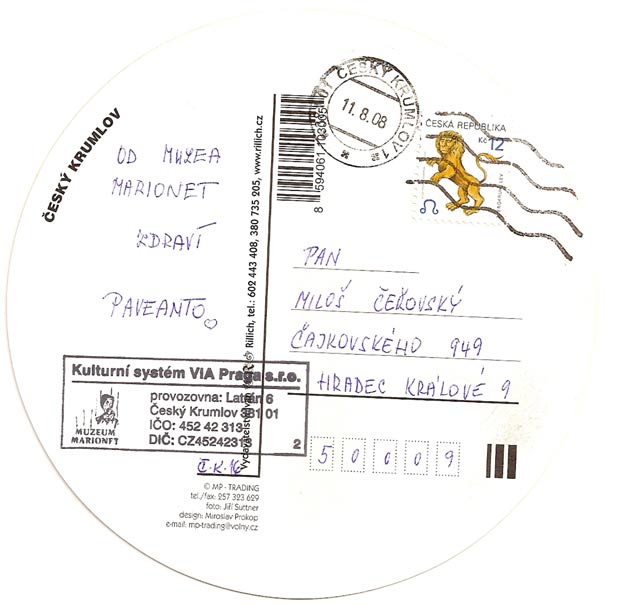 ČESKÝ KRUMLOV
OD MUZEA
MARIONET
ZDRAVÍ
PAVEANTO
Kulturní systém VIA Praga s.r.o.
provozovna: Latrán 6
Český Krumlov 381 01
IČO: 452 42 313
DIČ: CZ45242313
2
MUZEUM
MARIONET
Č.K. 16
© MP - TRADING
tel./fax: 257 323 629
foto: Jiří Suttner
design: Miroslav Prokop
e-mail: mp-trading@volny.cz
Rillich, tel.: 602 443 408, 380 735 205, www.rillich.cz
8 594061
ČESKÝ KRUMLOV 1
11.8.08
ČESKÁ REPUBLIKA
Kč 12
PAN
MILOŠ ČEŘOVSKÝ
ČAJKOVSKÉHO 949
HRADEC KRÁLOVÉ 9
5 0 0 0 9